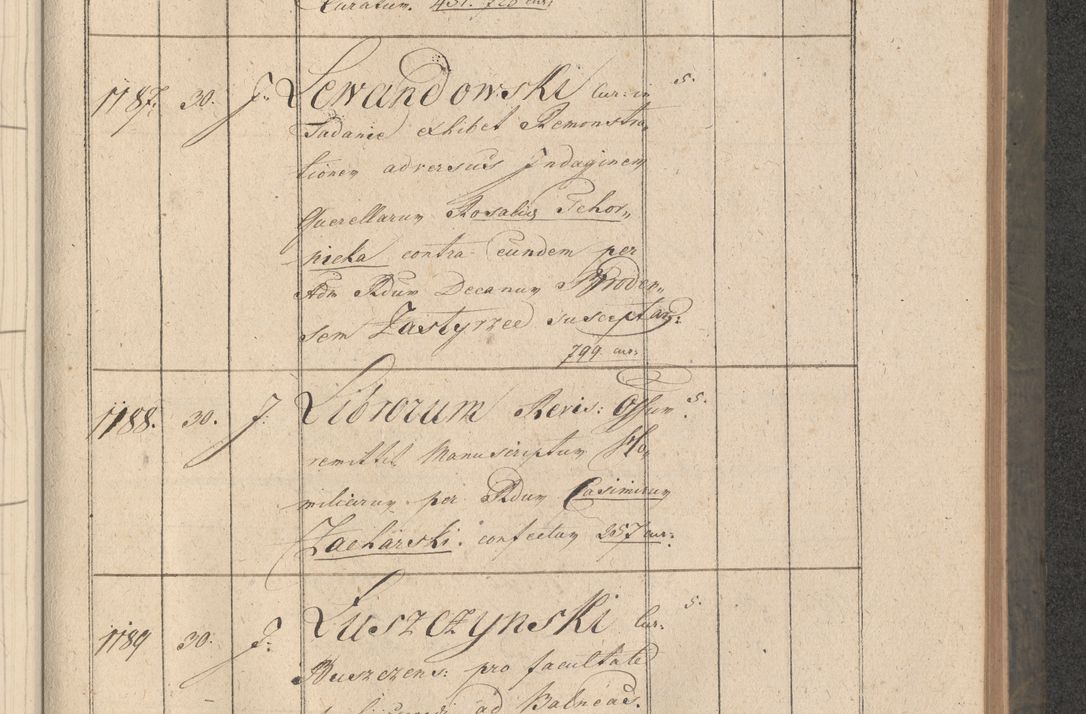 Curatum. 451. 728 cur:
1187. 30. J. Lewandowski Cur: in 5.
Tadanie exhibet Remonstra„
tionem adversus Indaginem
Querellarum Rosaliæ Tchor„
nicka contra Eundem per
Adm Rdum Decanum Broden„
sem Zastyrzec susceptam:
799 cur:
1188. 30. J. Librorum Revis: Offium 5.
remittit Manuscriptum Ho„
miliarum per Rdum Casimirum
Zacharski. confectum 257 cur:
1189 30. J. Łuszczynski Cur: 5.
Buszczens: pro facultate
ad Balneas.